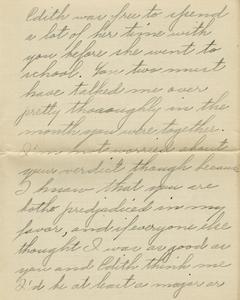 Edith was free to spend
a lot of her time with
you before she went to
school. You two must
have talked me over
pretty thoroughly in the
month you were together.
I'm not worried about
your verdict though because
I know that you are
both predjudiced in my
favor, and if everyone else
thought I was as good as
you and Edith think me
I'd be at least a major or